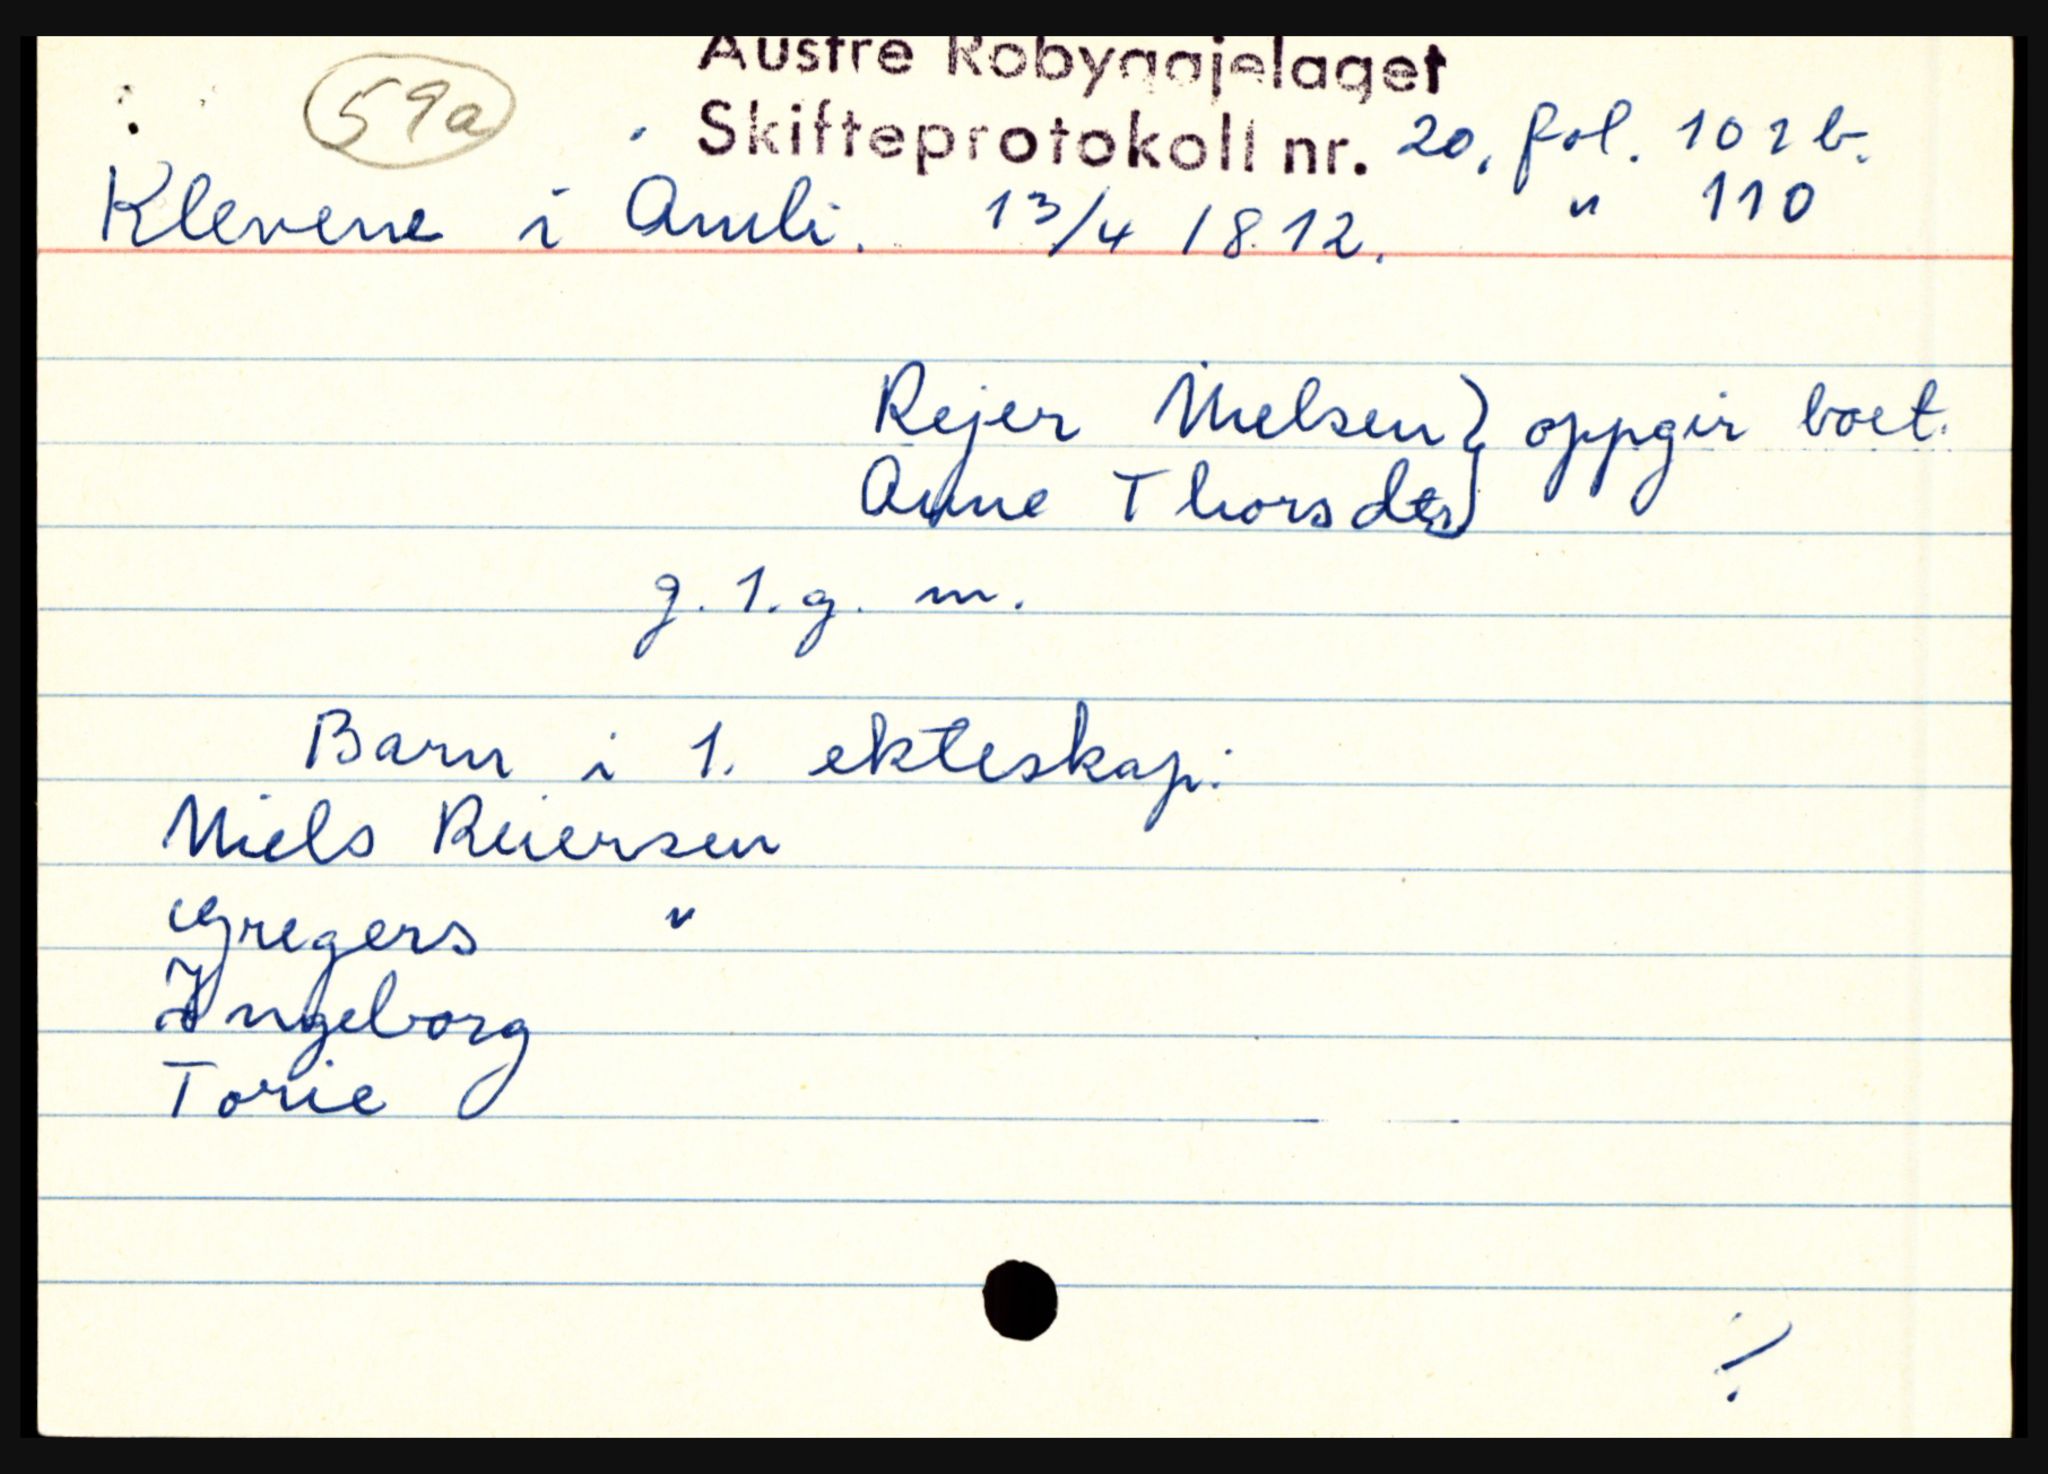 Austre Robyggjelaget
59a
Skifteprotokoll nr. 20, fol. 102b.
Klevene i Amli. 13/4 1812. " 110
Rejer Nielsen } oppgir boet.
Anne Thorsdtr }
g. 1. g. m.
Barn i 1. ekteskap:
Niels Reiersen
Gregers "
Ingeborg
Torie
./.